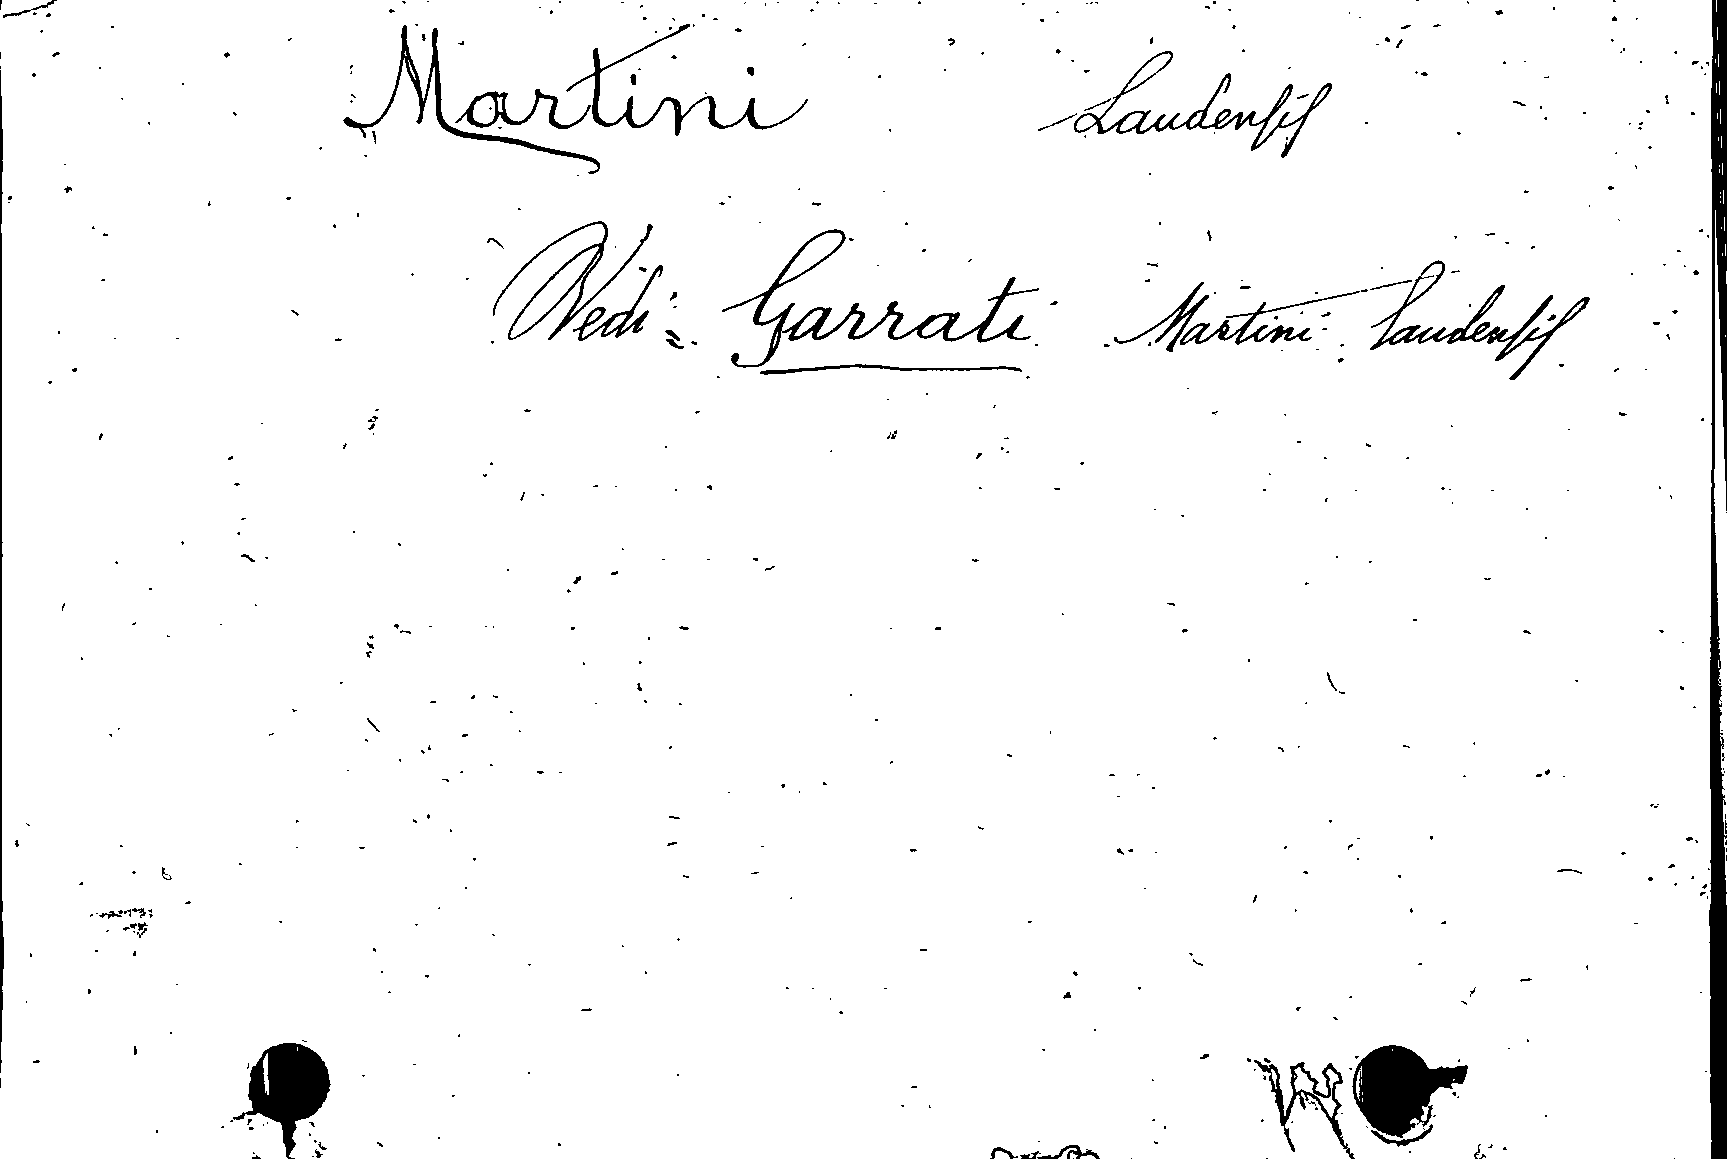 Martini Laudensis
Vedi: Garrati Martini Laudensis